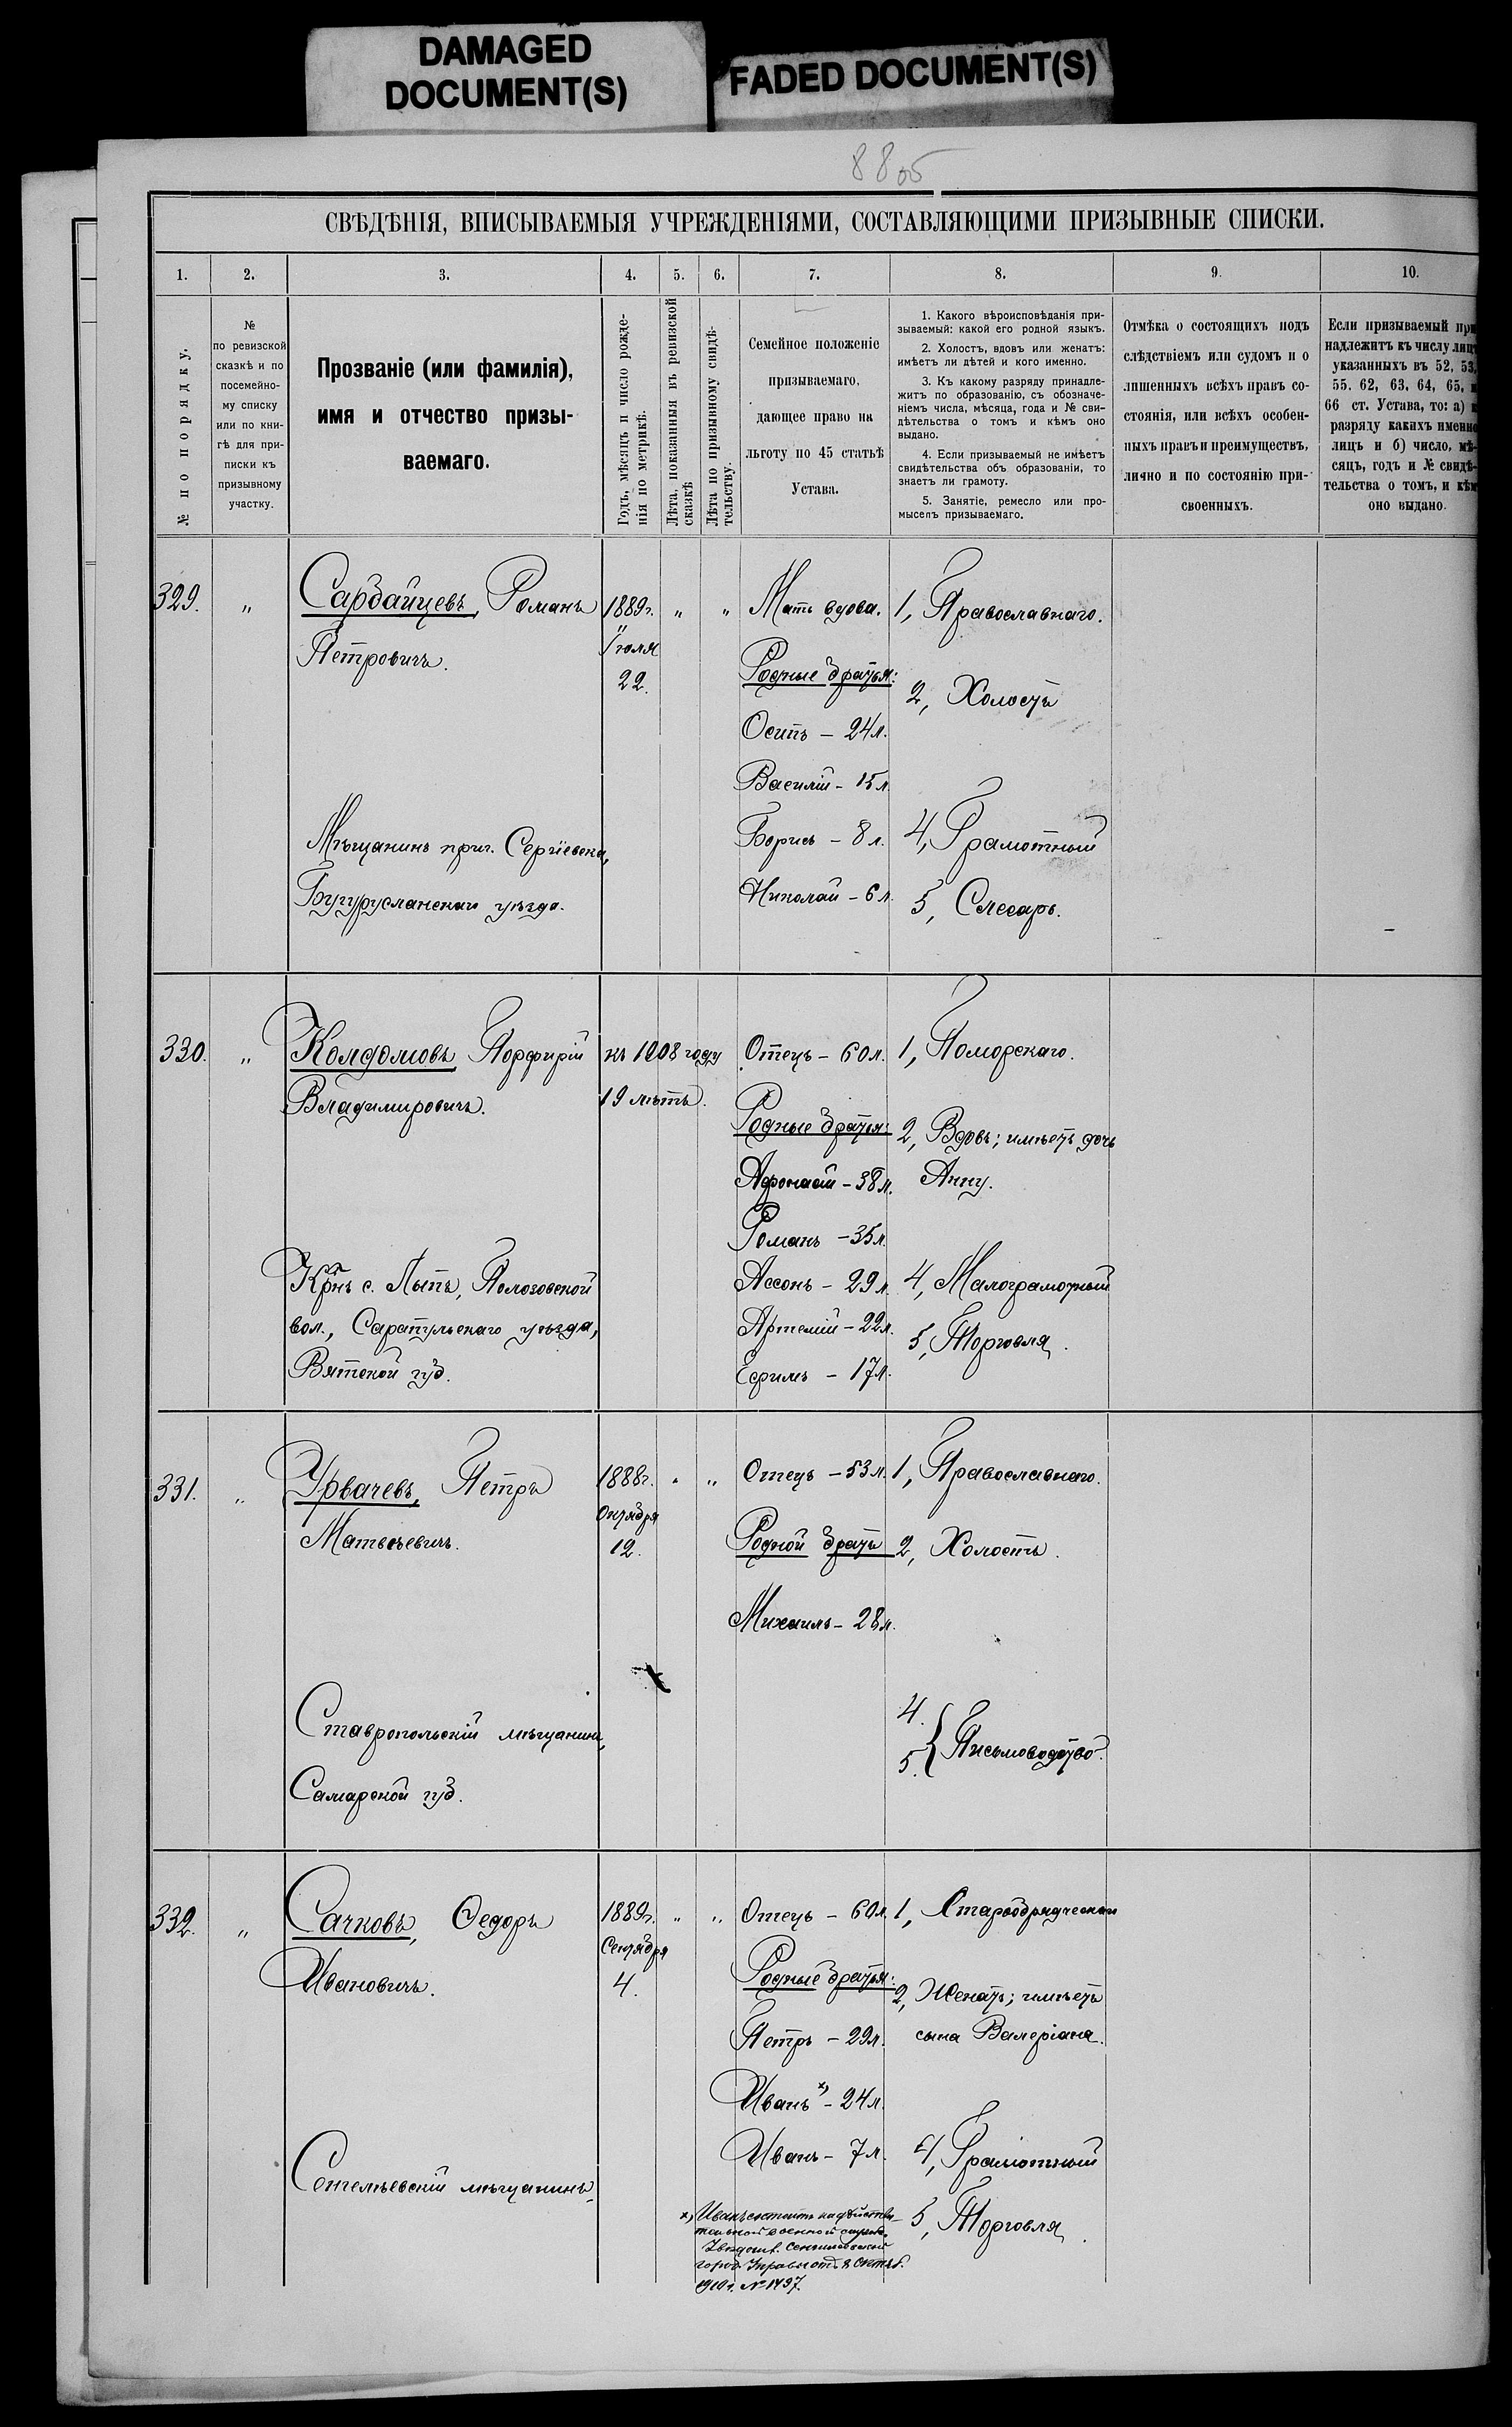 DAMAGED
DOCUMENT(S)
FADED DOCUMENT(S)
88
СВѢДѢНІЯ, ВПИСЫВАЕМЫЯ УЧРЕЖДЕНІЯМИ, СОСТАВЛЯЮЩИМИ ПРИЗЫВНЫЕ СПИСКИ.
1.
2.
3.
4.
5.
6.
7.
8.
9.
10.
№ по порядку.
№
по ревизской
сказкѣ и по
посемейно-
му списку
или по кни-
гѣ для при-
писки къ
призывному
участку.
Прозваніе (или фамилія),
имя и отчество призы-
ваемаго.
Годъ, мѣсяцъ и число рожде-
нія по метрикѣ.
Лѣта, показанныя въ ревизской
сказкѣ
Лѣта по призывному свидѣ-
тельству.
Семейное положеніе
призываемаго,
дающее право на
льготу по 45 статьѣ
Устава.
1. Какого вѣроисповѣданія при-
зываемый: какой его родной языкъ.
2. Холостъ, вдовъ или женатъ:
имѣетъ ли дѣтей и кого именно.
3. Къ какому разряду принадле-
житъ по образованію, съ обозначе-
ніемъ числа, мѣсяца, года и № сви-
дѣтельства о томъ и кѣмъ оно
выдано.
4. Если призываемый не имѣетъ
свидѣтельства объ образованіи, то
знаетъ ли грамоту.
5. Занятіе, ремесло или про-
мыселъ призываемаго.
Отмѣка о состоящихъ подъ
слѣдствіемъ или судомъ и о
лишенныхъ всѣхъ правъ со-
стоянія, или всѣхъ особен-
ныхъ правъ и преимуществъ,
лично и по состоянію при-
своенныхъ.
Если призываемый при
надлежитъ къ числу лиц
указанныхъ въ 52, 53,
55. 62, 63, 64, 65, и
66 ст. Устава, то: а) к
разряду какихъ именно
лицъ и б) число, мѣ-
сяцъ, годъ и № свидѣ-
тельства о томъ, и кѣм
оно выдано.
329.
"
Сардайцевъ, Романъ
Петровичъ.
Мѣщанинъ приг. Сергіевска,
Бугурусланскаго уѣзда.
1889г.
Іюля
22.
"
"
Мать вдова.
Родные братья:
Осипъ – 24 л.
Василій – 15 л.
Борисъ – 8 л.
Николай – 6 л.
1, Православнаго.
2, Холостъ
4, Грамотный
5, Слесарь.
330.
"
Колдомовъ, Порфирій
Владимировичъ.
Крнъ с. Лыпъ, Пологовской
вол., Сарапульскаго уѣзда,
Вятской губ.
къ 1908 году
19 лѣтъ.
Отецъ – 60 л.
Родные братья:
Афонасій – 38 л.
Романъ – 35 л.
Ассонъ – 29 л.
Артемій – 22 л.
Ефимъ – 17 л.
1, Поморскаго.
2, Вдовъ; имѣетъ дочь
Анну.
4, Малограмотный
5, Торговля.
331.
"
Урвачевъ, Петръ
Матвѣевичъ.
Ставропольскій мѣщанинъ,
Самарской губ.
1888г.
Октября
12.
"
"
Отецъ – 53 л.
Родной братъ
Михаилъ – 28 л.
1, Православнаго.
2, Холостъ.
4.
5. { Письмоводство.
332.
"
Сачковъ, Федоръ
Ивановичъ.
мѣщанинъ.
1889г.
Сентября
4.
"
"
Отецъ – 60 л.
Родные братья:
Петръ – 29 л.
Иванъ х) – 24 л.
Иванъ – 7 л.
х) Иванъ состоитъ на дѣйстви-
тельной военной службѣ.
1910 г. № 1497.
1, Старообрядческаго
2, Женатъ; имѣетъ
сына Валеріана.
4, Грамотный
5, Торговля.